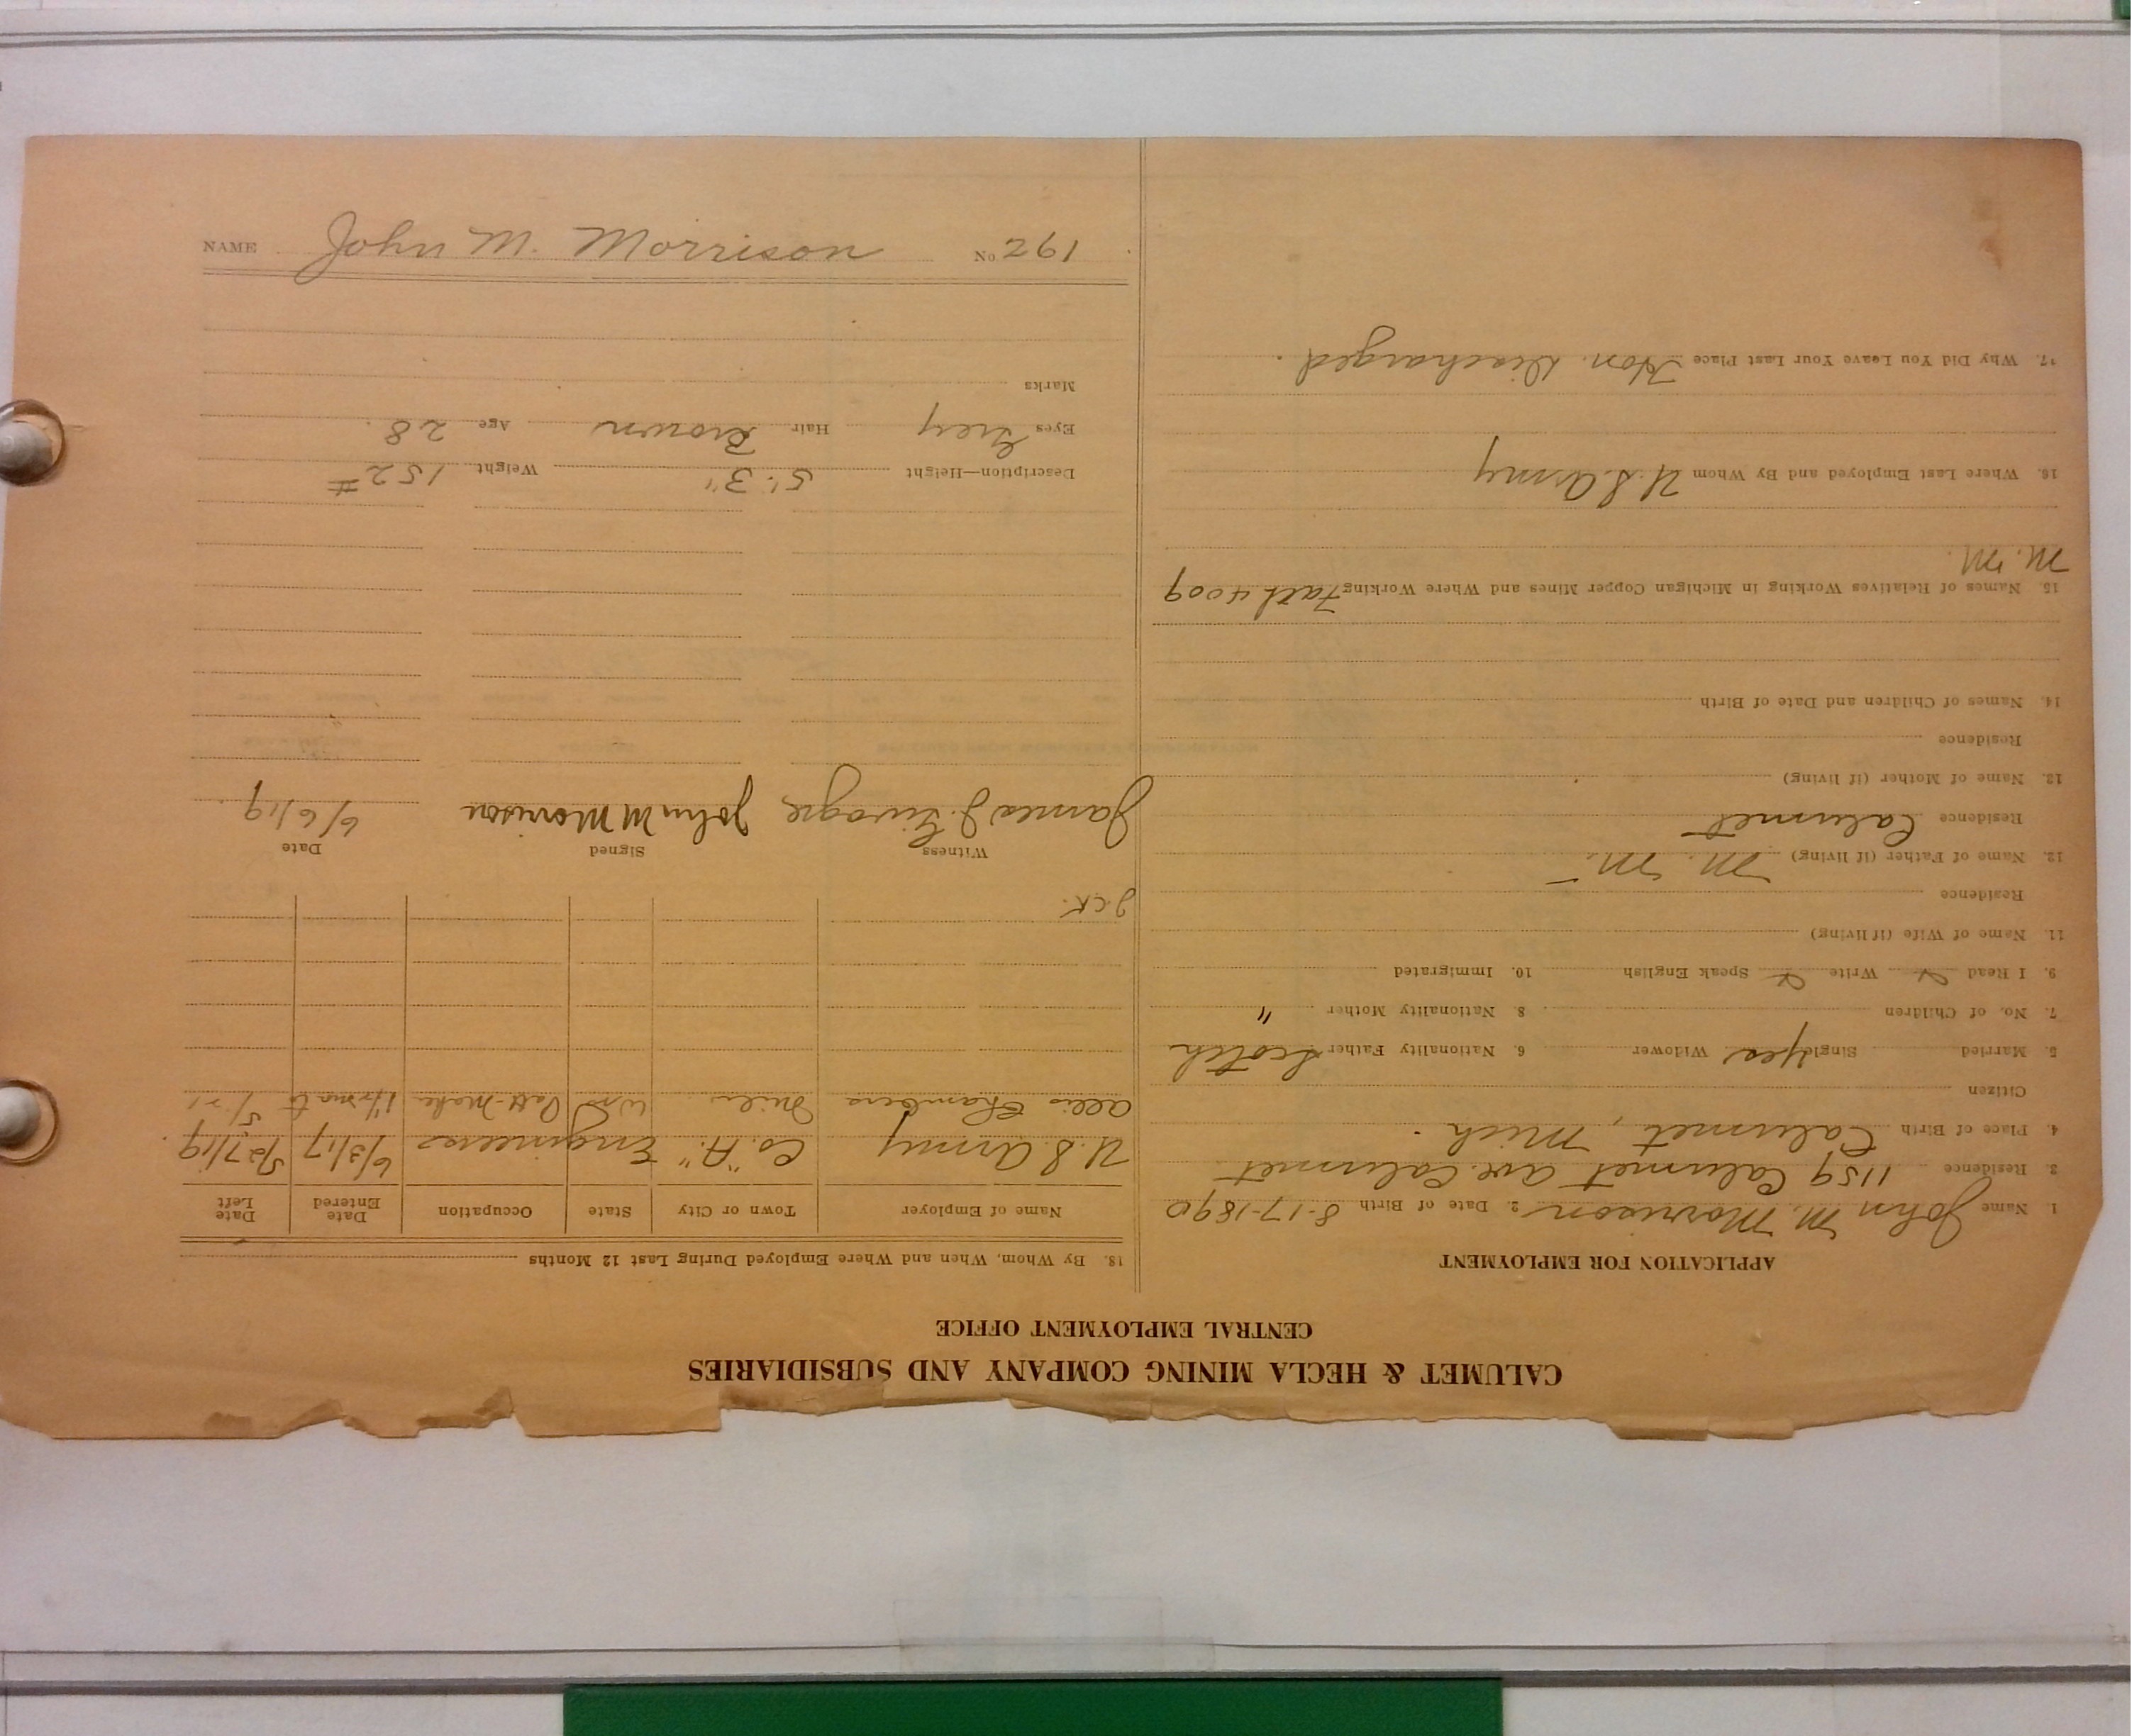 CALUMET & HECLA MINING COMPANY AND SUBSIDIARIES
CENTRAL EMPLOYMENT OFFICE
APPLICATION FOR EMPLOYMENT
1. Name John M. Morrison 2. Date of Birth 8-17-1890
3. Residence 1159 Calumet Ave. Calumet
4. Place of Birth Calumet, Mich.
Citizen
5. Married Single Yes Widower 6. Nationality Father Scotch
7. No. of Children 8. Nationality Mother "
9. I Read Write Speak English 10. Immigrated
11. Name of Wife (if living)
Residence
12. Name of Father (if living) M. M.
Residence Calumet
13. Name of Mother (if living)
Residence
14. Names of Children and Date of Birth
15. Names of Relatives Working in Michigan Copper Mines and Where Working Fath 4009
M. M.
16. Where Last Employed and By Whom U.S. Army
17. Why Did You Leave Your Last Place Hon. Discharged.
18. By Whom, When and Where Employed During Last 12 Months
Name of Employer Town or City State Occupation Date Entered Date Left
U.S. Army Co. "A" Engineers 6/3/17 5/27/19
Allis Chambers Wis Patt-Maker
Witness Signed Date
James J. John M Morrison 6/6/19.
Description—Height 5' 3" Weight 152#
Eyes Grey Hair Brown Age 28.
Marks
NAME John M. Morrison No. 261